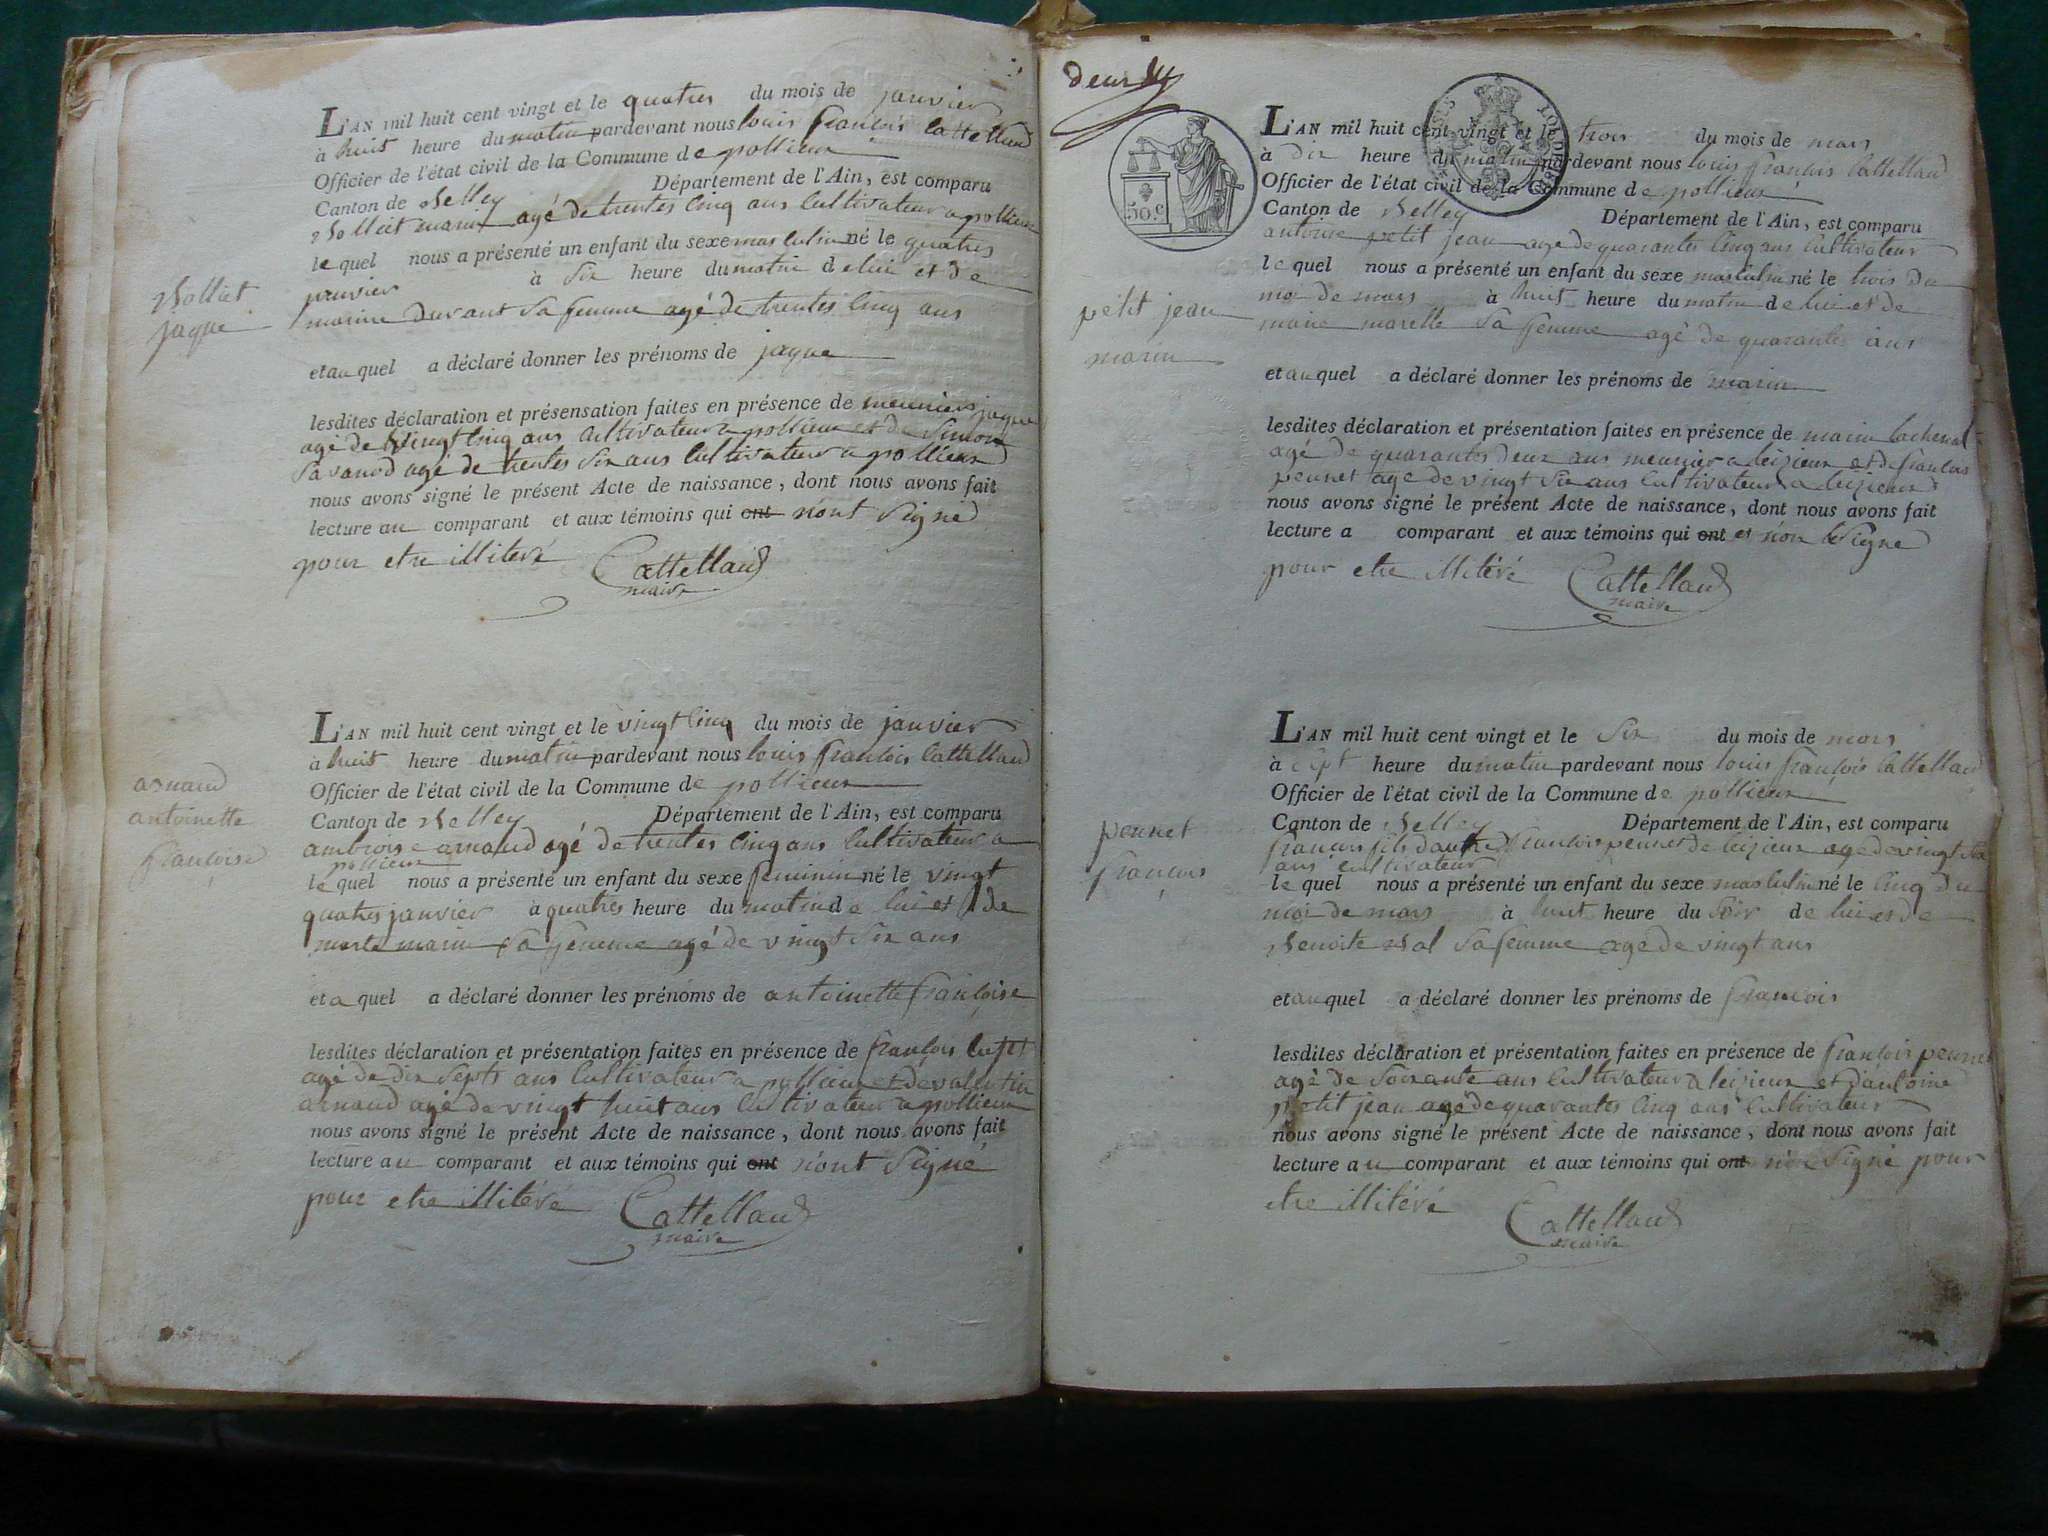 L'AN mil huit cent vingt et le quatres du mois de janvier
à huit heure du matin pardevant nous louis françois Cattelland
Officier de l'état civil de la Commune de pollieux
Canton de Belley Département de l'Ain, est comparu
Bolliet marin agé de trentes Cinq ans Cultivateur a pollieux
le quel nous a présenté un enfant du sexe masculin né le quatres
janvier à Six heure du matin de lui et de
marine Durant Sa femme agé de trentes Cinq ans
et au quel a déclaré donner les prénoms de jaque
lesdites déclaration et présensation faites en présence de meuniers jaque
agé de vingt Cinq ans Cultivateur a pollieux et de Simon
Savarod agé de trentes Six ans Cultivateur a pollieux
nous avons signé le présent Acte de naissance, dont nous avons fait
lecture au comparant et aux témoins qui ont n'ont Signé
pour etre illiteré
Cattelland
maire
Bolliet
jaque
L'AN mil huit cent vingt et le vingt Cinq du mois de janvier
à huit heure du matin pardevant nous louis françois Cattelland
Officier de l'état civil de la Commune de pollieux
Canton de Belley Département de l'Ain, est comparu
ambroise arnaud agé de trentes Cinq ans Cultivateur a
pollieux
le quel nous a présenté un enfant du sexe feminin né le vingt
quatres janvier à quatres heure du matin de lui et de
marin Sa femme agé de vingt Six ans
et a quel a déclaré donner les prénoms de antoinette françoise
lesdites déclaration et présentation faites en présence de françois
agé de dix Septs ans Cultivateur a pollieux et de valentin
arnaud agé de vingt huit ans Cultivateur a pollieux
nous avons signé le présent Acte de naissance, dont nous avons fait
lecture au comparant et aux témoins qui ont n'ont Signé
pour etre illiteré
Cattelland
maire
arnaud
antoinette
françoise
deux
50.c
L'AN mil huit cent vingt et le trois du mois de mars
à dix heure du matin pardevant nous louis françois Cattelland
Officier de l'état civil de la Commune de pollieux
Canton de Belley Département de l'Ain, est comparu
antoine petit jean agé de quarantes Cinq ans Cultivateur
le quel nous a présenté un enfant du sexe masculin né le trois du
moi de mars à huit heure du matin de lui et de
marie marelle Sa femme agé de quarantes ans
et au quel a déclaré donner les prénoms de marin
lesdites déclaration et présentation faites en présence de marin lachenal
agé de quarantes deux ans meunier a leizieux et de françois
pennet agé de vingt Six ans Cultivateur a leizieux
nous avons signé le présent Acte de naissance, dont nous avons fait
lecture a comparant et aux témoins qui ont et n'on Signé
pour etre illitéré
Cattelland
maire
petit jean
marin
L'AN mil huit cent vingt et le Six du mois de mars
à Sept heure du matin pardevant nous louis françois Cattelland
Officier de l'état civil de la Commune de pollieux
Canton de Belley Département de l'Ain, est comparu
françois fils d'autre françois pennet de leizieux agé de vingt Six
ans cultivateur
le quel nous a présenté un enfant du sexe masculin né le Cinq du
moi de mars à huit heure du Soir de lui et de
Benoite Sa femme agé de vingt ans
et au quel a déclaré donner les prénoms de françois
lesdites déclaration et présentation faites en présence de françois pennet
agé de Soixante ans Cultivateur a leizieux et d'antoine
petit jean agé de quarantes Cinq ans Cultivateur
nous avons signé le présent Acte de naissance, dont nous avons fait
lecture au comparant et aux témoins qui ont Signé pour
etre illitéré
Cattelland
maire
pennet
françois